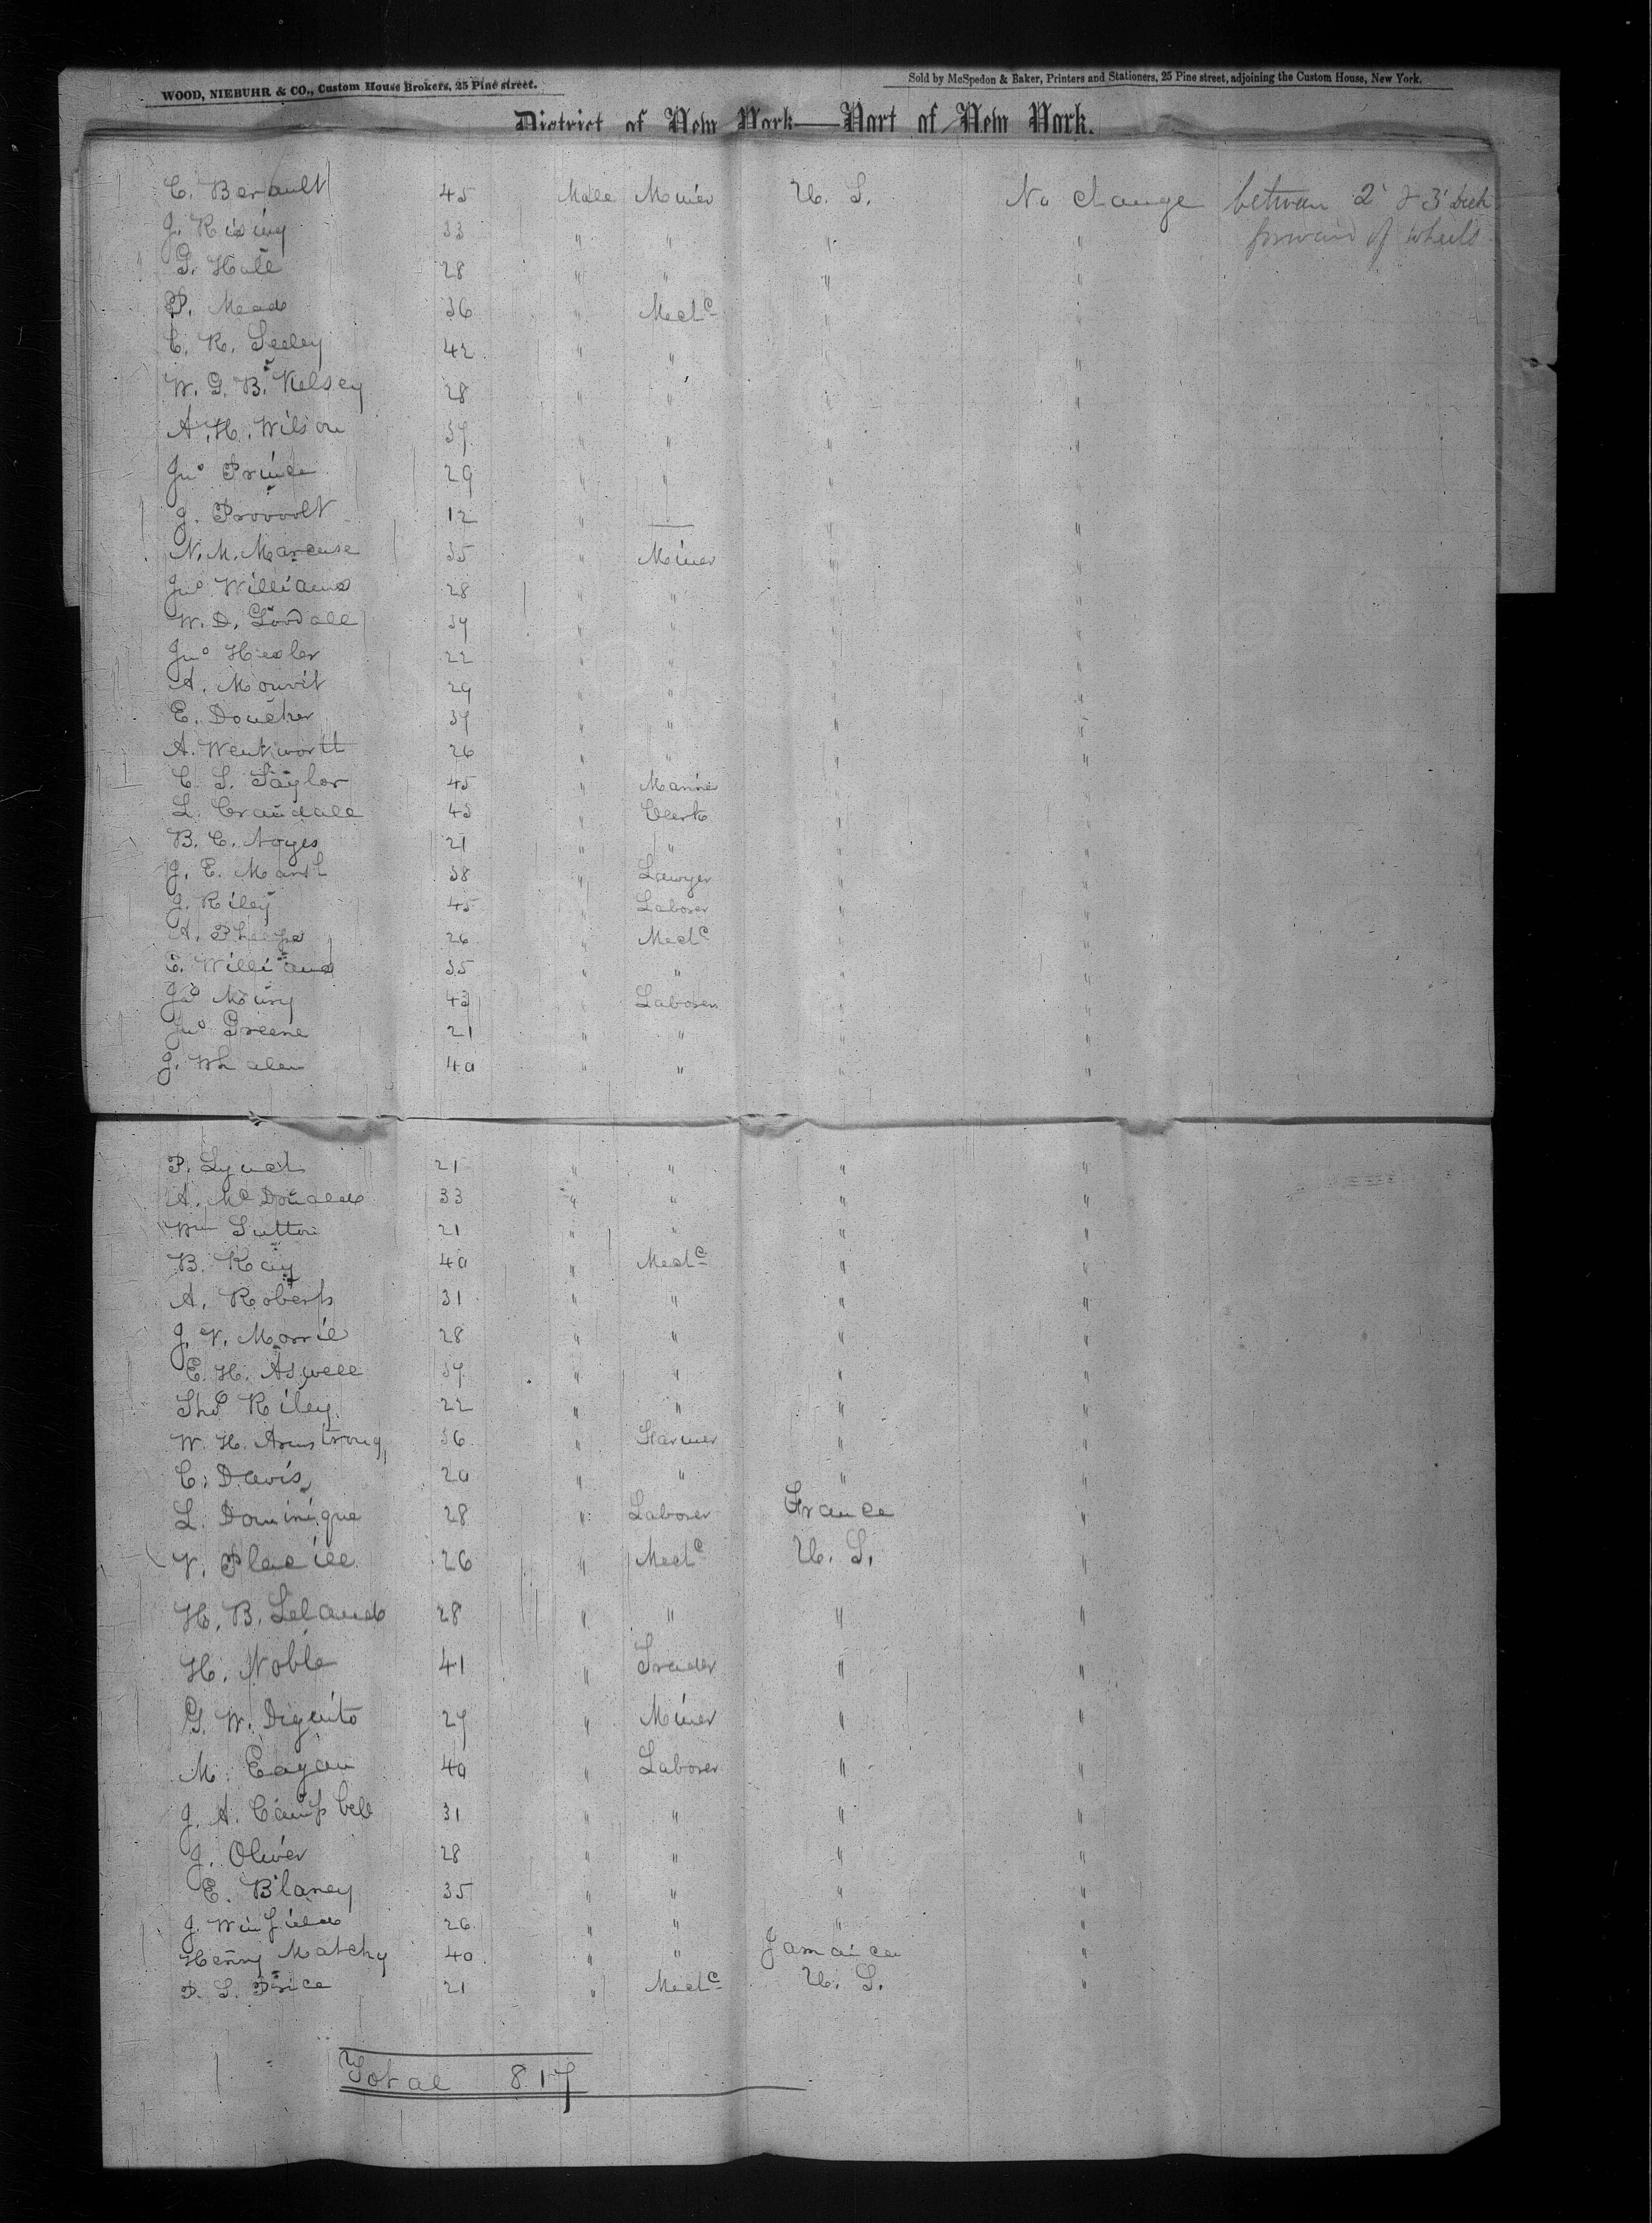 WOOD, NIEBUHR & CO., Custom House Brokers, 25 Pine street.
Sold by McSpedon & Baker, Printers and Stationers, 25 Pine street, adjoining the Custom House, New York.
District of New York—Port of New York.
C. Berault 45 Male Miner U. S. No change between 2d & 3d Deck
J. Rising 33 " " " " forward of wheels
G. Hall 28 " " " "
P. Mead 36 " Mechc " "
C. R. Seeley 42 " " " "
W. G. B. Kelsey 28 " " " "
A. H. Wilson 37 " " " "
Jno Prince 29 " " " "
J. Provoolt 12 " — " "
N. M. Marcuse 35 " Miner " "
Jno Williams 28 " " " "
W. D. Goodall 37 " " " "
Jno Hesler 22 " " " "
A. Mouvit 29 " " " "
E. Doucher 37 " " " "
A. Wentworth 26 " " " "
C. S. Taylor 45 " Marine " "
L. Crandall 43 " Clerk " "
B. C. Noyes 21 " " " "
J. E. Marsh 38 " Lawyer " "
J. Riley 45 " Laborer " "
A. Phelps 26 " Mechc " "
E. Williams 35 " " " "
Jas Moury 43 " Laborer " "
Jno Greene 21 " " " "
J. Whalen 40 " " " "
P. Lynch 21 " " " "
A. McDonald 33 " " " "
Wm Sutton 21 " " " "
B. Kay 40 " Mechc " "
A. Roberts 31 " " " "
J. V. Morril 28 " " " "
E. H. Aswell 37 " " " "
Tho Riley 22 " " " "
W. H. Armstrong 36 " Farmer " "
C. Davis 20 " " " "
L. Dominique 28 " Laborer France "
V. Placill 26 " Mechc U. S. "
H. B. Leland 28 " " " "
H. Noble 41 " Trader " "
G. W. Dignito 27 " Miner " "
M. Eagan 40 " Laborer " "
J. A. Campbell 31 " " " "
J. Oliver 28 " " " "
E. Blaney 35 " " " "
J. Winfield 26 " " " "
Henry Matchy 40 " " Jamaica "
P. S. Price 21 " Mechc U. S. "
Total 817